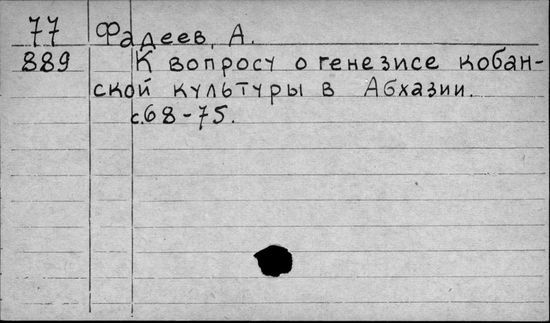 77 Фадеев, А.
889 К вопросу о генезисе кобан-
ской культуры в Абхазии.
с.68-75.